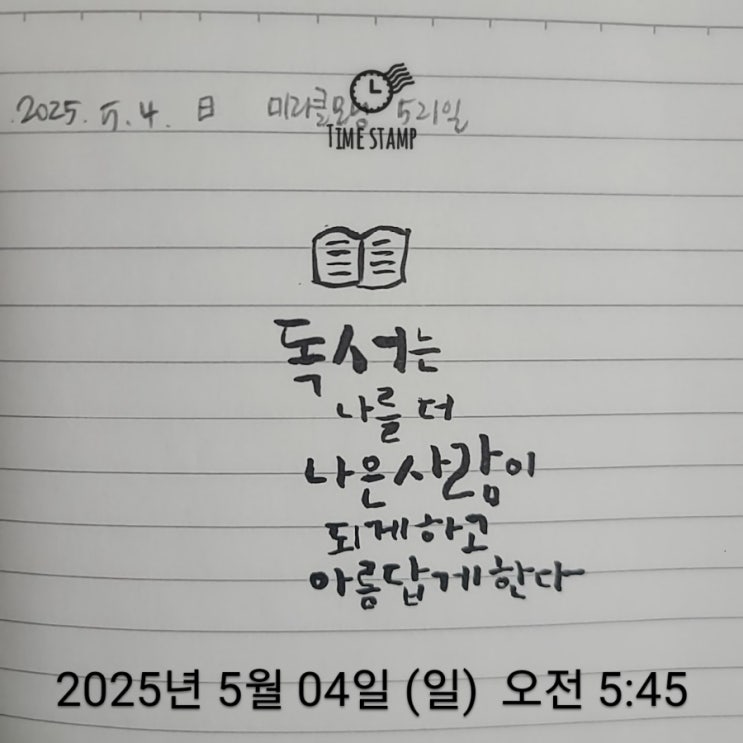 2025. 5. 4. 日 미라클모닝 521일
TIME STAMP
독서는
나를 더
나은 사람이
되게하고
아름답게한다
2025년 5월 04일 (일) 오전 5:45